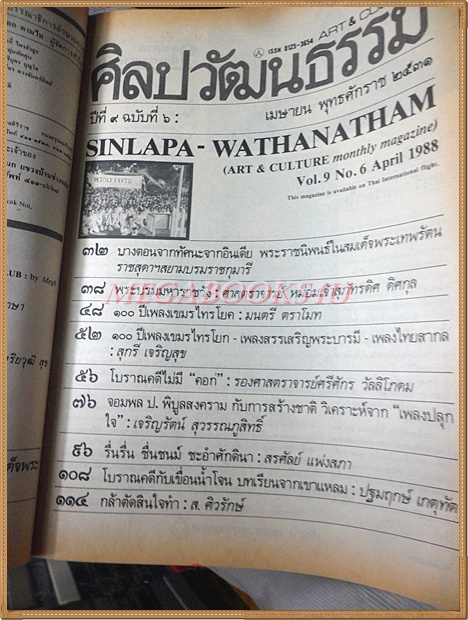 ART & CU
ISSN 0125-3654
ศิลปวัฒนธรรม
ปีที่ ๙ ฉบับที่ ๖ :
เมษายน พุทธศักราช ๒๕๓๑
SINLAPA - WATHANATHAM
(ART & CULTURE monthly magazine)
Vol. 9 No. 6 April 1988
This magazine is available on Thai International flight.
๓๒ บางตอนจากทัศนะจากอินเดีย พระราชนิพนธ์ในสมเด็จพระเทพรัตน
ราชสุดาฯสยามบรมราชกุมารี
๓๘ พระบรมมหาราชวัง : ศาสตราจารย์ หม่อมเจ้าสุภัทรดิศ ดิศกุล
๔๘ ๑๐๐ ปีเพลงเขมรไทรโยค : มนตรี ตราโมท
๕๒ ๑๐๐ ปีเพลงเขมรไทรโยก - เพลงสรรเสริญพระบารมี - เพลงไทยสากล
: สุกรี เจริญสุข
๕๖ โบราณคดีไม่มี "คอก" : รองศาสตราจารย์ศรีศักร วัลลิโภดม
๗๖ จอมพล ป. พิบูลสงคราม กับการสร้างชาติ วิเคราะห์จาก "เพลงปลุก
ใจ" : เจริญรัตน์ สุวรรณภูสิทธิ์
๙๖ รื่นรื่น ชื่นชนม์ ชะอำศักดินา : สรศัลย์ แพ่งสภา
๑๐๘ โบราณคดีกับเขื่อนน้ำโจน บทเรียนจากเขาแหลม : ปฐมฤกษ์ เกตุทัต
๑๑๔ กล้าตัดสินใจทำ : ส. ศิวรักษ์